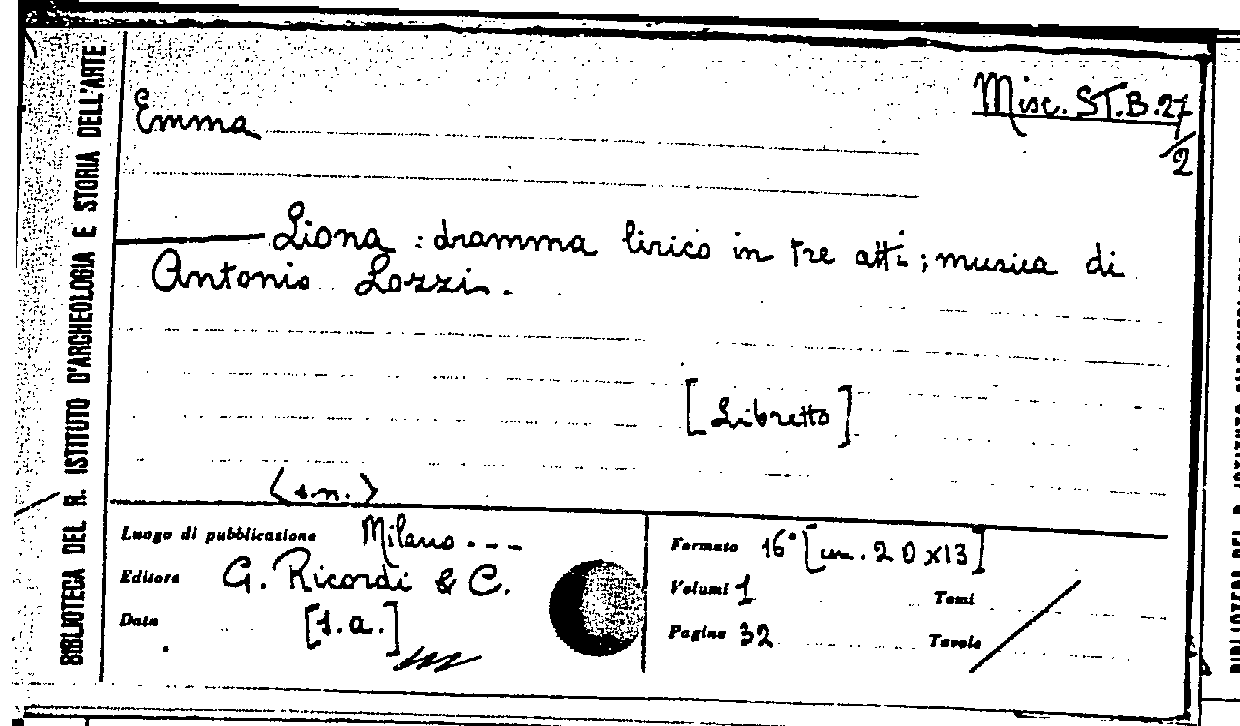 BIBLIOTECA DEL R. ISTITUTO D'ARCHEOLOGIA E STORIA DELL'ARTE
Misc. ST.B.27/2
Emma
Liona : dramma lirico in tre atti ; musica di
Antonio Lozzi.
[Libretto]
(s.n.)
Luogo di pubblicazione Milano - - -
Editore G. Ricordi & C.
Data [s.a.]
Formato 16° [cm. 20x13]
Volumi 1 Tomi
Pagine 32 Tavole